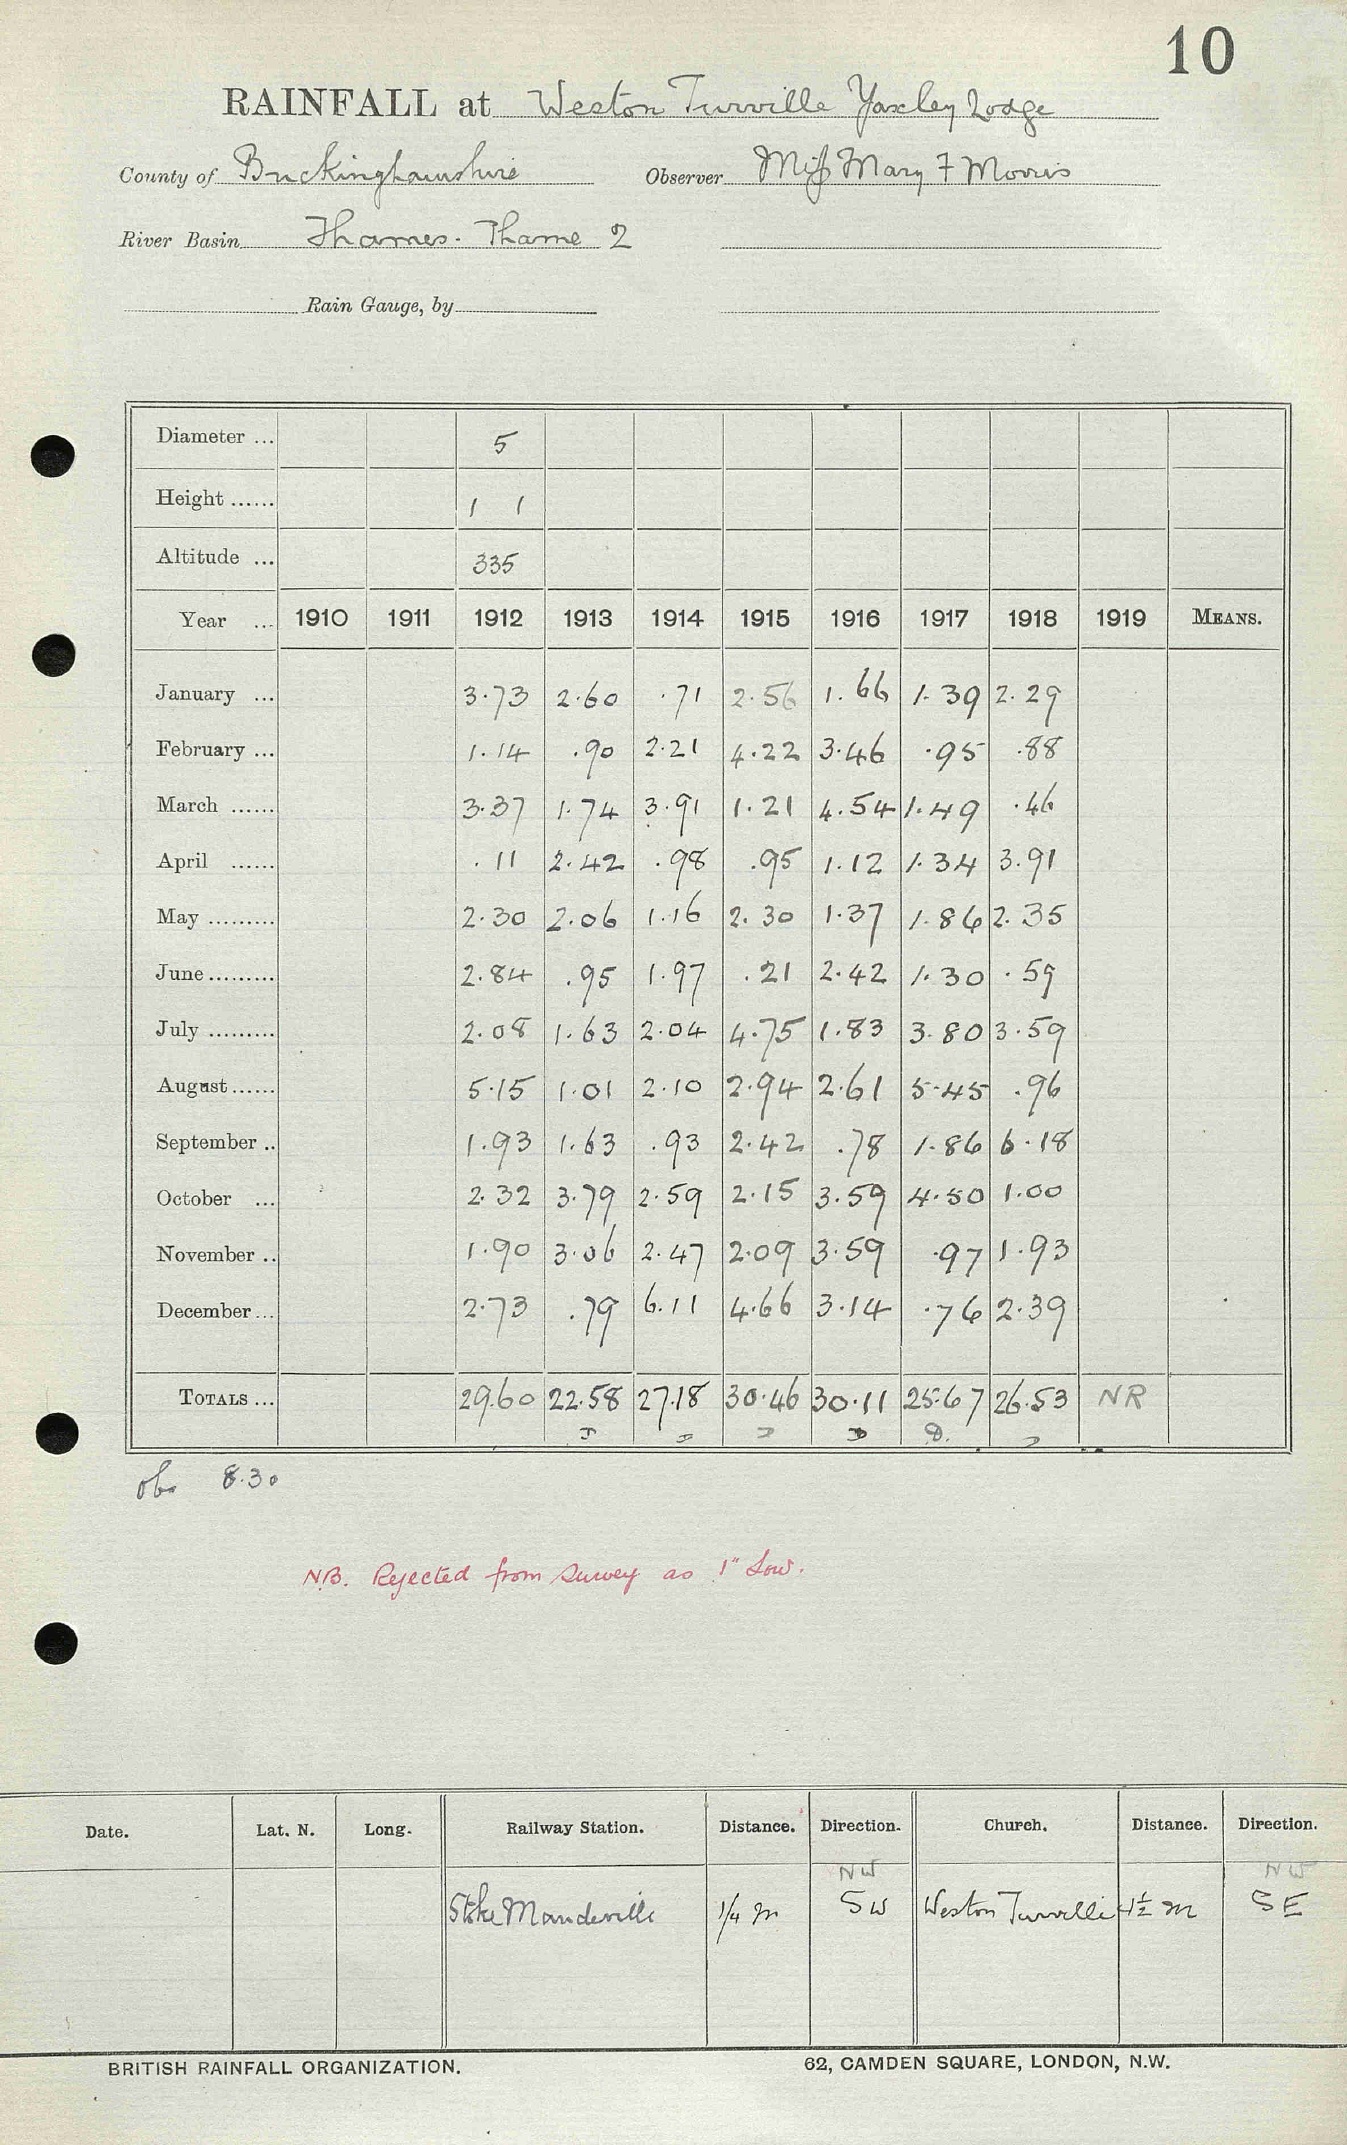 10
RAINFALL at Weston Turville Yaxley Lodge
County of Buckinghamshire Observer Miss Mary F Morris
River Basin Thames. Thame 2
Rain Gauge, by
Diameter ... 5
Height ...... 1 1
Altitude ... 335
Year ... 1910 1911 1912 1913 1914 1915 1916 1917 1918 1919 MEANS.
January ... 3.73 2.60 .71 2.56 1.66 1.39 2.29
February ... 1.14 .90 2.21 4.22 3.46 .95 .88
March ...... 3.37 1.74 3.91 1.21 4.54 1.49 .46
April ...... .11 2.42 .98 .95 1.12 1.34 3.91
May ......... 2.30 2.06 1.16 2.30 1.37 1.86 2.35
June ......... 2.84 .95 1.97 .21 2.42 1.30 .59
July ......... 2.08 1.63 2.04 4.75 1.83 3.80 3.59
August ...... 5.15 1.01 2.10 2.94 2.61 5.45 .96
September .. 1.93 1.63 .93 2.42 .78 1.86 6.18
October ... 2.32 3.79 2.59 2.15 3.59 4.50 1.00
November .. 1.90 3.06 2.47 2.09 3.59 .97 1.93
December ... 2.73 .79 6.11 4.66 3.14 .76 2.39
TOTALS ... 29.60 22.58 27.18 30.46 30.11 25.67 26.53 NR
obs 8.30
N.B. Rejected from Survey as 1" Low.
Date. Lat. N. Long. Railway Station. Distance. Direction. Church. Distance. Direction.
NW NW
Stoke Mandeville 1/4 m SW Weston Turville 1½ m SE
BRITISH RAINFALL ORGANIZATION. 62, CAMDEN SQUARE, LONDON, N.W.